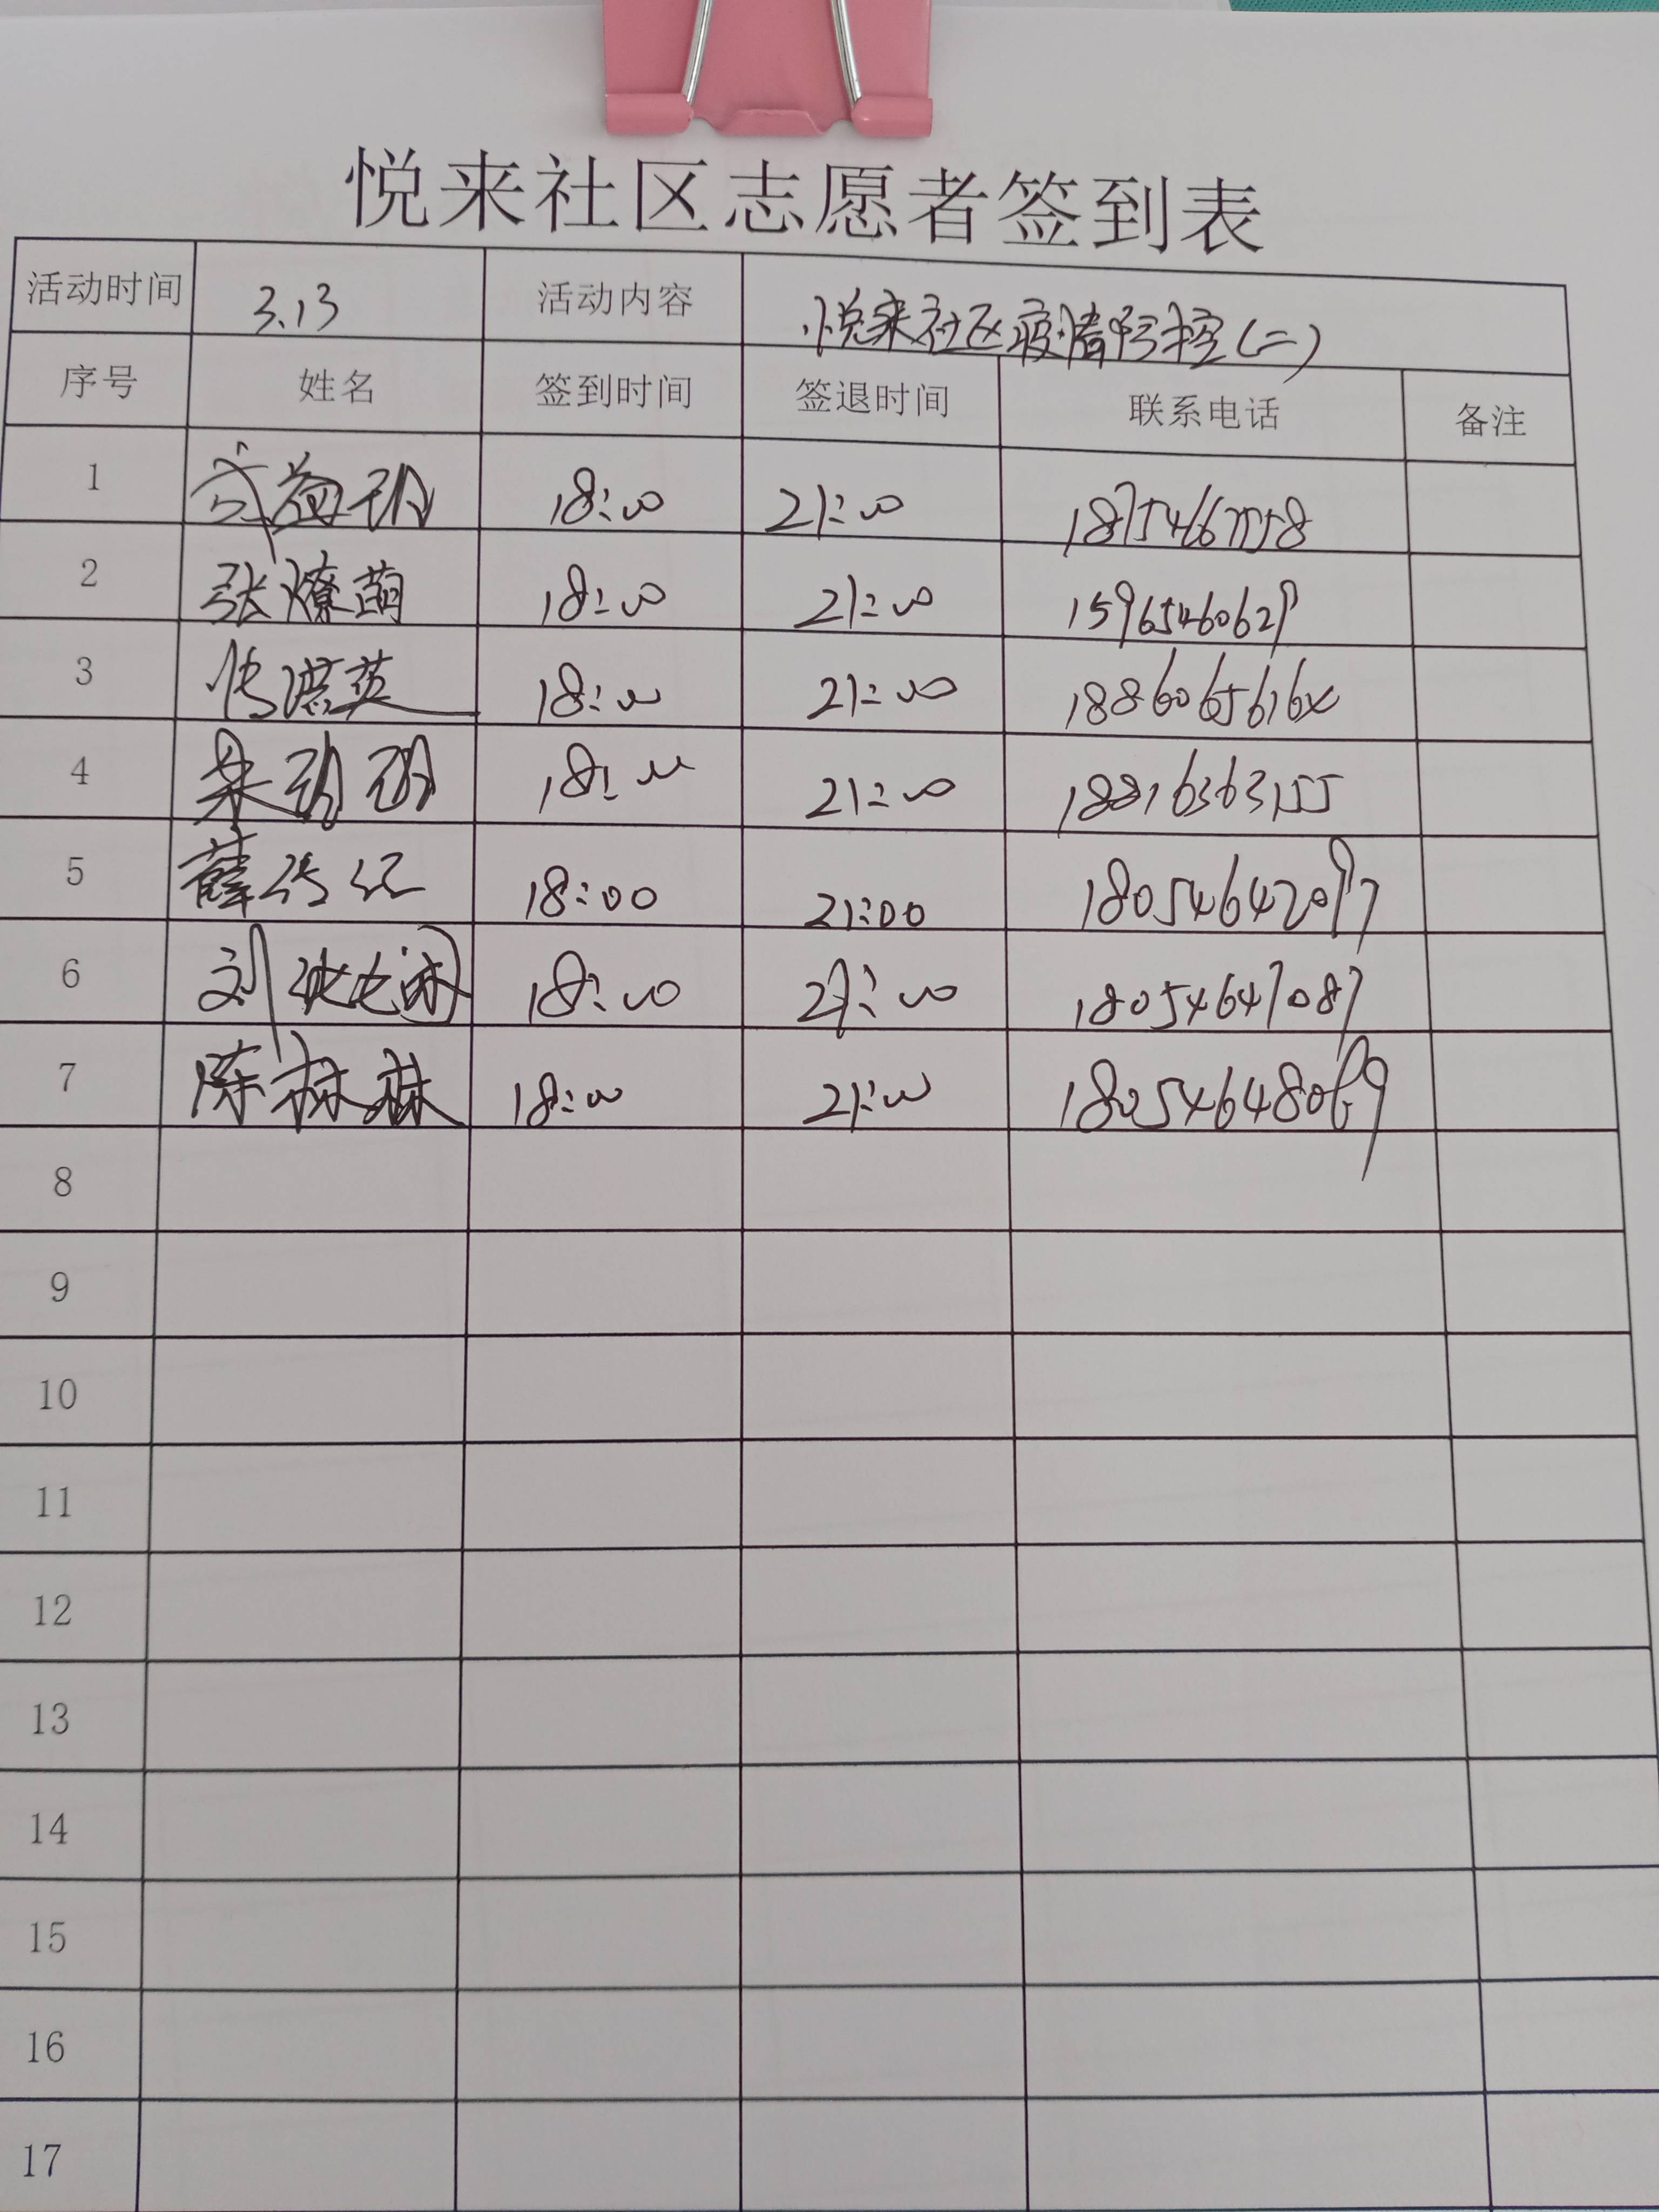 悦来社区志愿者签到表
活动时间 3.13 活动内容 悦来社区疫情防控(二)
序号 姓名 签到时间 签退时间 联系电话 备注
1 18:00 21:00
2 张燎萌 18:00 21:00 15965460629
3 18:00 21:00
4 18:00 21:00 18816363155
5 薛传 18:00 21:00 18054642097
6 刘 18:00 21:00 18054647087
7 陈林林 18:00 21:00 18054648069
8
9
10
11
12
13
14
15
16
17